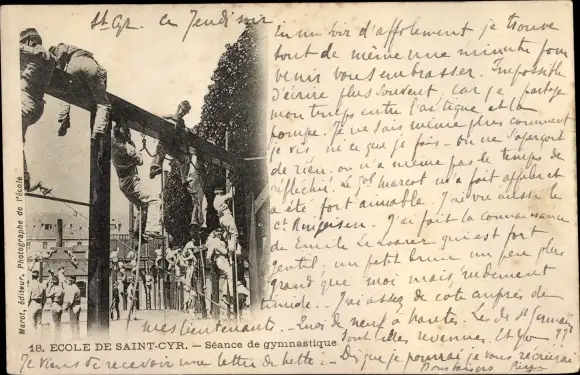 St Cyr ce Jeudi soir
En un soir d'affolement je trouve
tout de même une minute pour
venir vous embrasser. Impossible
d'écrire plus souvent, car je partage
mon temps entre l'astique et la
pompe. Je ne sais même plus comment
je vis ni ce que je fais - on ne s'aperçoit
de rien, on n'a même pas le temps de
réfléchir. Le Gol Marcot m'a fait appeler et
a été fort aimable. J'ai vu aussi le
Ct
J'ai fait la connaissance
de Emile qui est fort
gentil, un petit brun un peu plus
grand que moi mais rudement
timide. - J'ai assez de cote auprès de
mes lieutenants. - Rien de neuf à Nantes. Les de St Germain
sont elles revenues.
Je viens de recevoir une lettre de - Dis que je pourrai je vous récrirai
Bons baisers
Marot, Éditeur. Photographe de l'école
18. ECOLE DE SAINT-CYR. — Séance de gymnastique